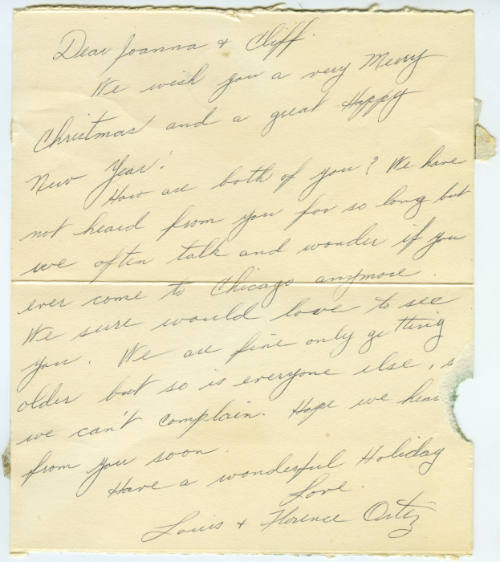 Dear Joanna & Cliff.
We wish you a very Merry
Christmas and a great Happy
New Year!
How are both of you? We have
not heard from you for so long but
we often talk and wonder if you
ever come to Chicago anymore.
We sure would love to see
you. We are fine only getting
older but so is everyone else, s
we can't complain. Hope we hear
from you soon.
Have a wonderful Holiday
Love.
Louis & Florence Ortiz